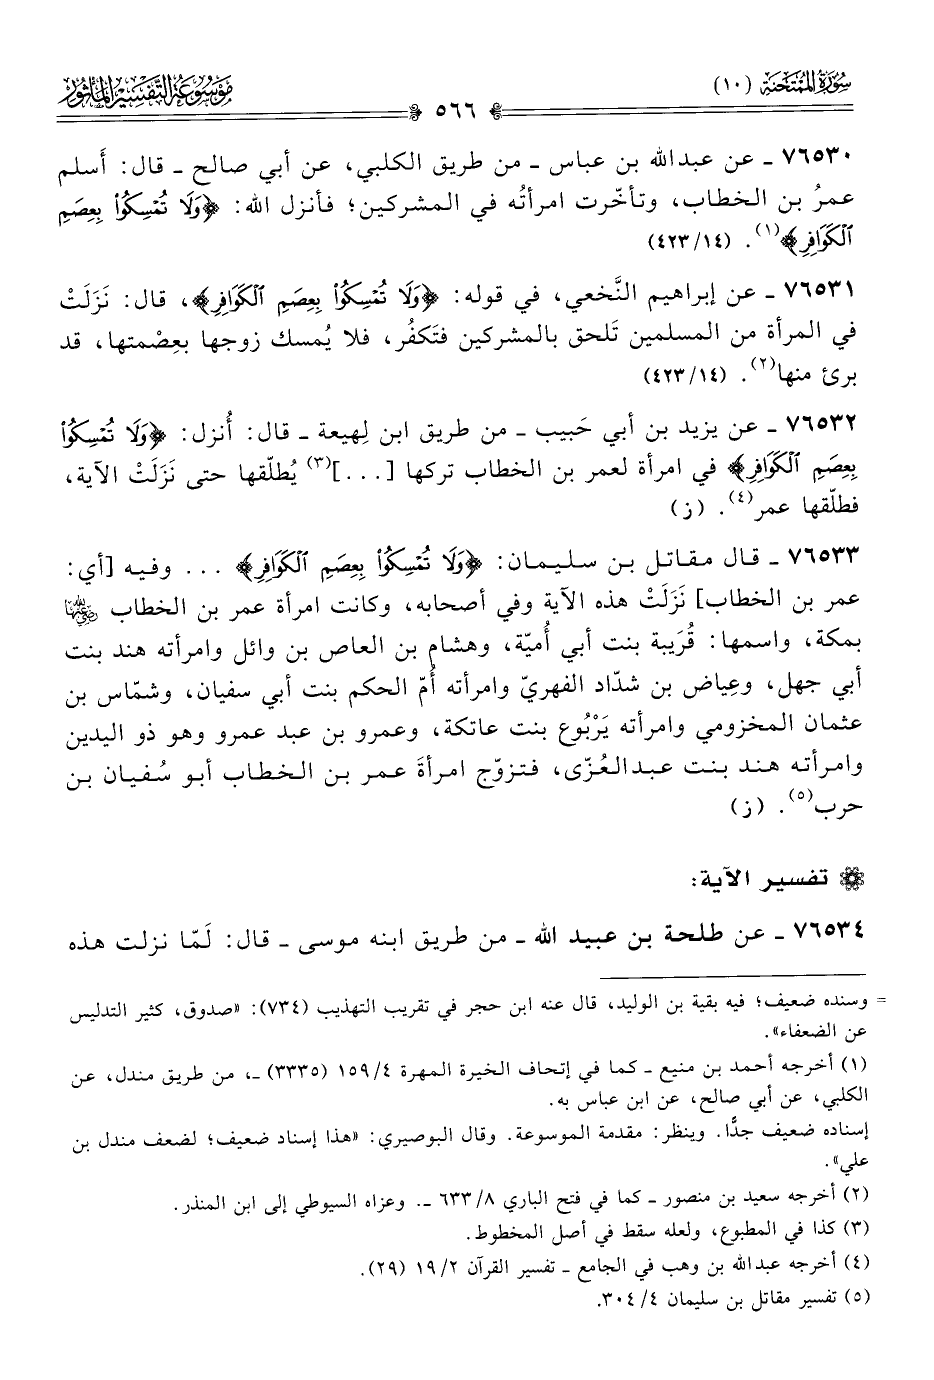 سُورَةُ المُمْتَحنَة (١٠)
مَوْسُوعَة التَّفْسِير المَأْثُور
٥٦٦
٧٦٥٣٠ ـ عن عبدالله بن عباس ـ من طريق الكلبي، عن أبي صالح ـ قال: أسلم
عمرُ بن الخطاب، وتأخّرت امرأتُه في المشركين؛ فأنزل الله: ﴿وَلَا تُمْسِكُوا۟ بِعِصَمِ
ٱلْكَوَافِرِ﴾(١). (٤٢٣/١٤)
٧٦٥٣١ ـ عن إبراهيم النَّخعي، في قوله: ﴿وَلَا تُمْسِكُوا۟ بِعِصَمِ ٱلْكَوَافِرِ﴾، قال: نَزَلَتْ
في المرأة من المسلمين تَلحق بالمشركين فتَكفُر، فلا يُمسك زوجها بعِصْمتها، قد
برئ منها(٢). (٤٢٣/١٤)
٧٦٥٣٢ ـ عن يزيد بن أبي حَبيب ـ من طريق ابن لِهيعة ـ قال: أُنزل: ﴿وَلَا تُمْسِكُوا۟
بِعِصَمِ ٱلْكَوَافِرِ﴾ في امرأة لعمر بن الخطاب تركها [...](٣) يُطلّقها حتى نَزَلَتْ الآية،
فطلّقها عمر(٤). (ز)
٧٦٥٣٣ ـ قال مقاتل بن سليمان: ﴿وَلَا تُمْسِكُوا۟ بِعِصَمِ ٱلْكَوَافِرِ﴾ ... وفيه [أي:
عمر بن الخطاب] نَزَلَتْ هذه الآية وفي أصحابه، وكانت امرأة عمر بن الخطاب رضي الله عنه
بمكة، واسمها: قُرَيبة بنت أبي أُميّة، وهشام بن العاص بن وائل وامرأته هند بنت
أبي جهل، وعِياض بن شدّاد الفهريّ وامرأته أُمّ الحكم بنت أبي سفيان، وشمّاس بن
عثمان المخزومي وامرأته يَرْبُوع بنت عاتكة، وعمرو بن عبد عمرو وهو ذو اليدين
وامرأته هند بنت عبدالعُزّى، فتزوّج امرأةَ عمر بن الخطاب أبو سُفيان بن
حرب(٥). (ز)
تفسير الآية:
٧٦٥٣٤ ـ عن طلحة بن عبيد الله ـ من طريق ابنه موسى ـ قال: لَمّا نزلت هذه
= وسنده ضعيف؛ فيه بقية بن الوليد، قال عنه ابن حجر في تقريب التهذيب (٧٣٤): «صدوق، كثير التدليس
عن الضعفاء».
(١) أخرجه أحمد بن منيع ـ كما في إتحاف الخيرة المهرة ١٥٩/٤ (٣٣٣٥) ـ، من طريق مندل، عن
الكلبي، عن أبي صالح، عن ابن عباس به.
إسناده ضعيف جدًّا. وينظر: مقدمة الموسوعة. وقال البوصيري: «هذا إسناد ضعيف؛ لضعف مندل بن
علي».
(٢) أخرجه سعيد بن منصور ـ كما في فتح الباري ٦٣٣/٨ ـ. وعزاه السيوطي إلى ابن المنذر.
(٣) كذا في المطبوع، ولعله سقط في أصل المخطوط.
(٤) أخرجه عبدالله بن وهب في الجامع ـ تفسير القرآن ١٩/٢ (٢٩).
(٥) تفسير مقاتل بن سليمان ٣٠٤/٤.